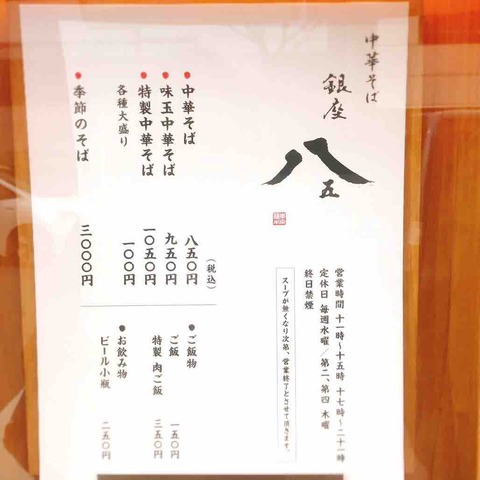 中華そば
銀座
八五
営業時間 十一時～十五時 十七時～二十一時
定休日 毎週水曜／第二、第四 木曜
終日禁煙
スープが無くなり次第、営業終了とさせて頂きます。
(税込)
●中華そば 八五〇円
●味玉中華そば 九五〇円
●特製中華そば 一〇五〇円
各種大盛り 一〇〇円
●季節のそば 三〇〇〇円
●ご飯物
ご飯 一五〇円
特製 肉ご飯 三五〇円
●お飲み物
ビール小瓶 二五〇円